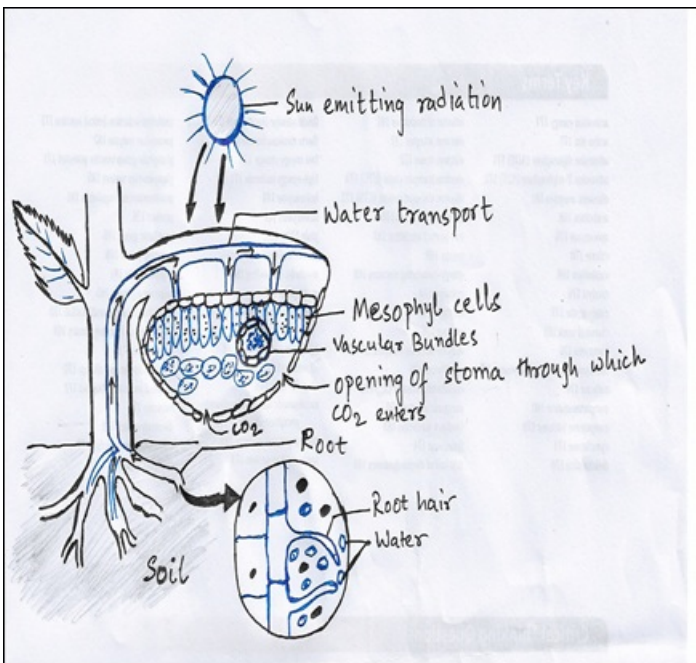 Sun emitting radiation
Water transport
Mesophyl cells
Vascular Bundles
opening of stoma through which
CO2 enters
CO2
Root
Root hair
Water
Soil